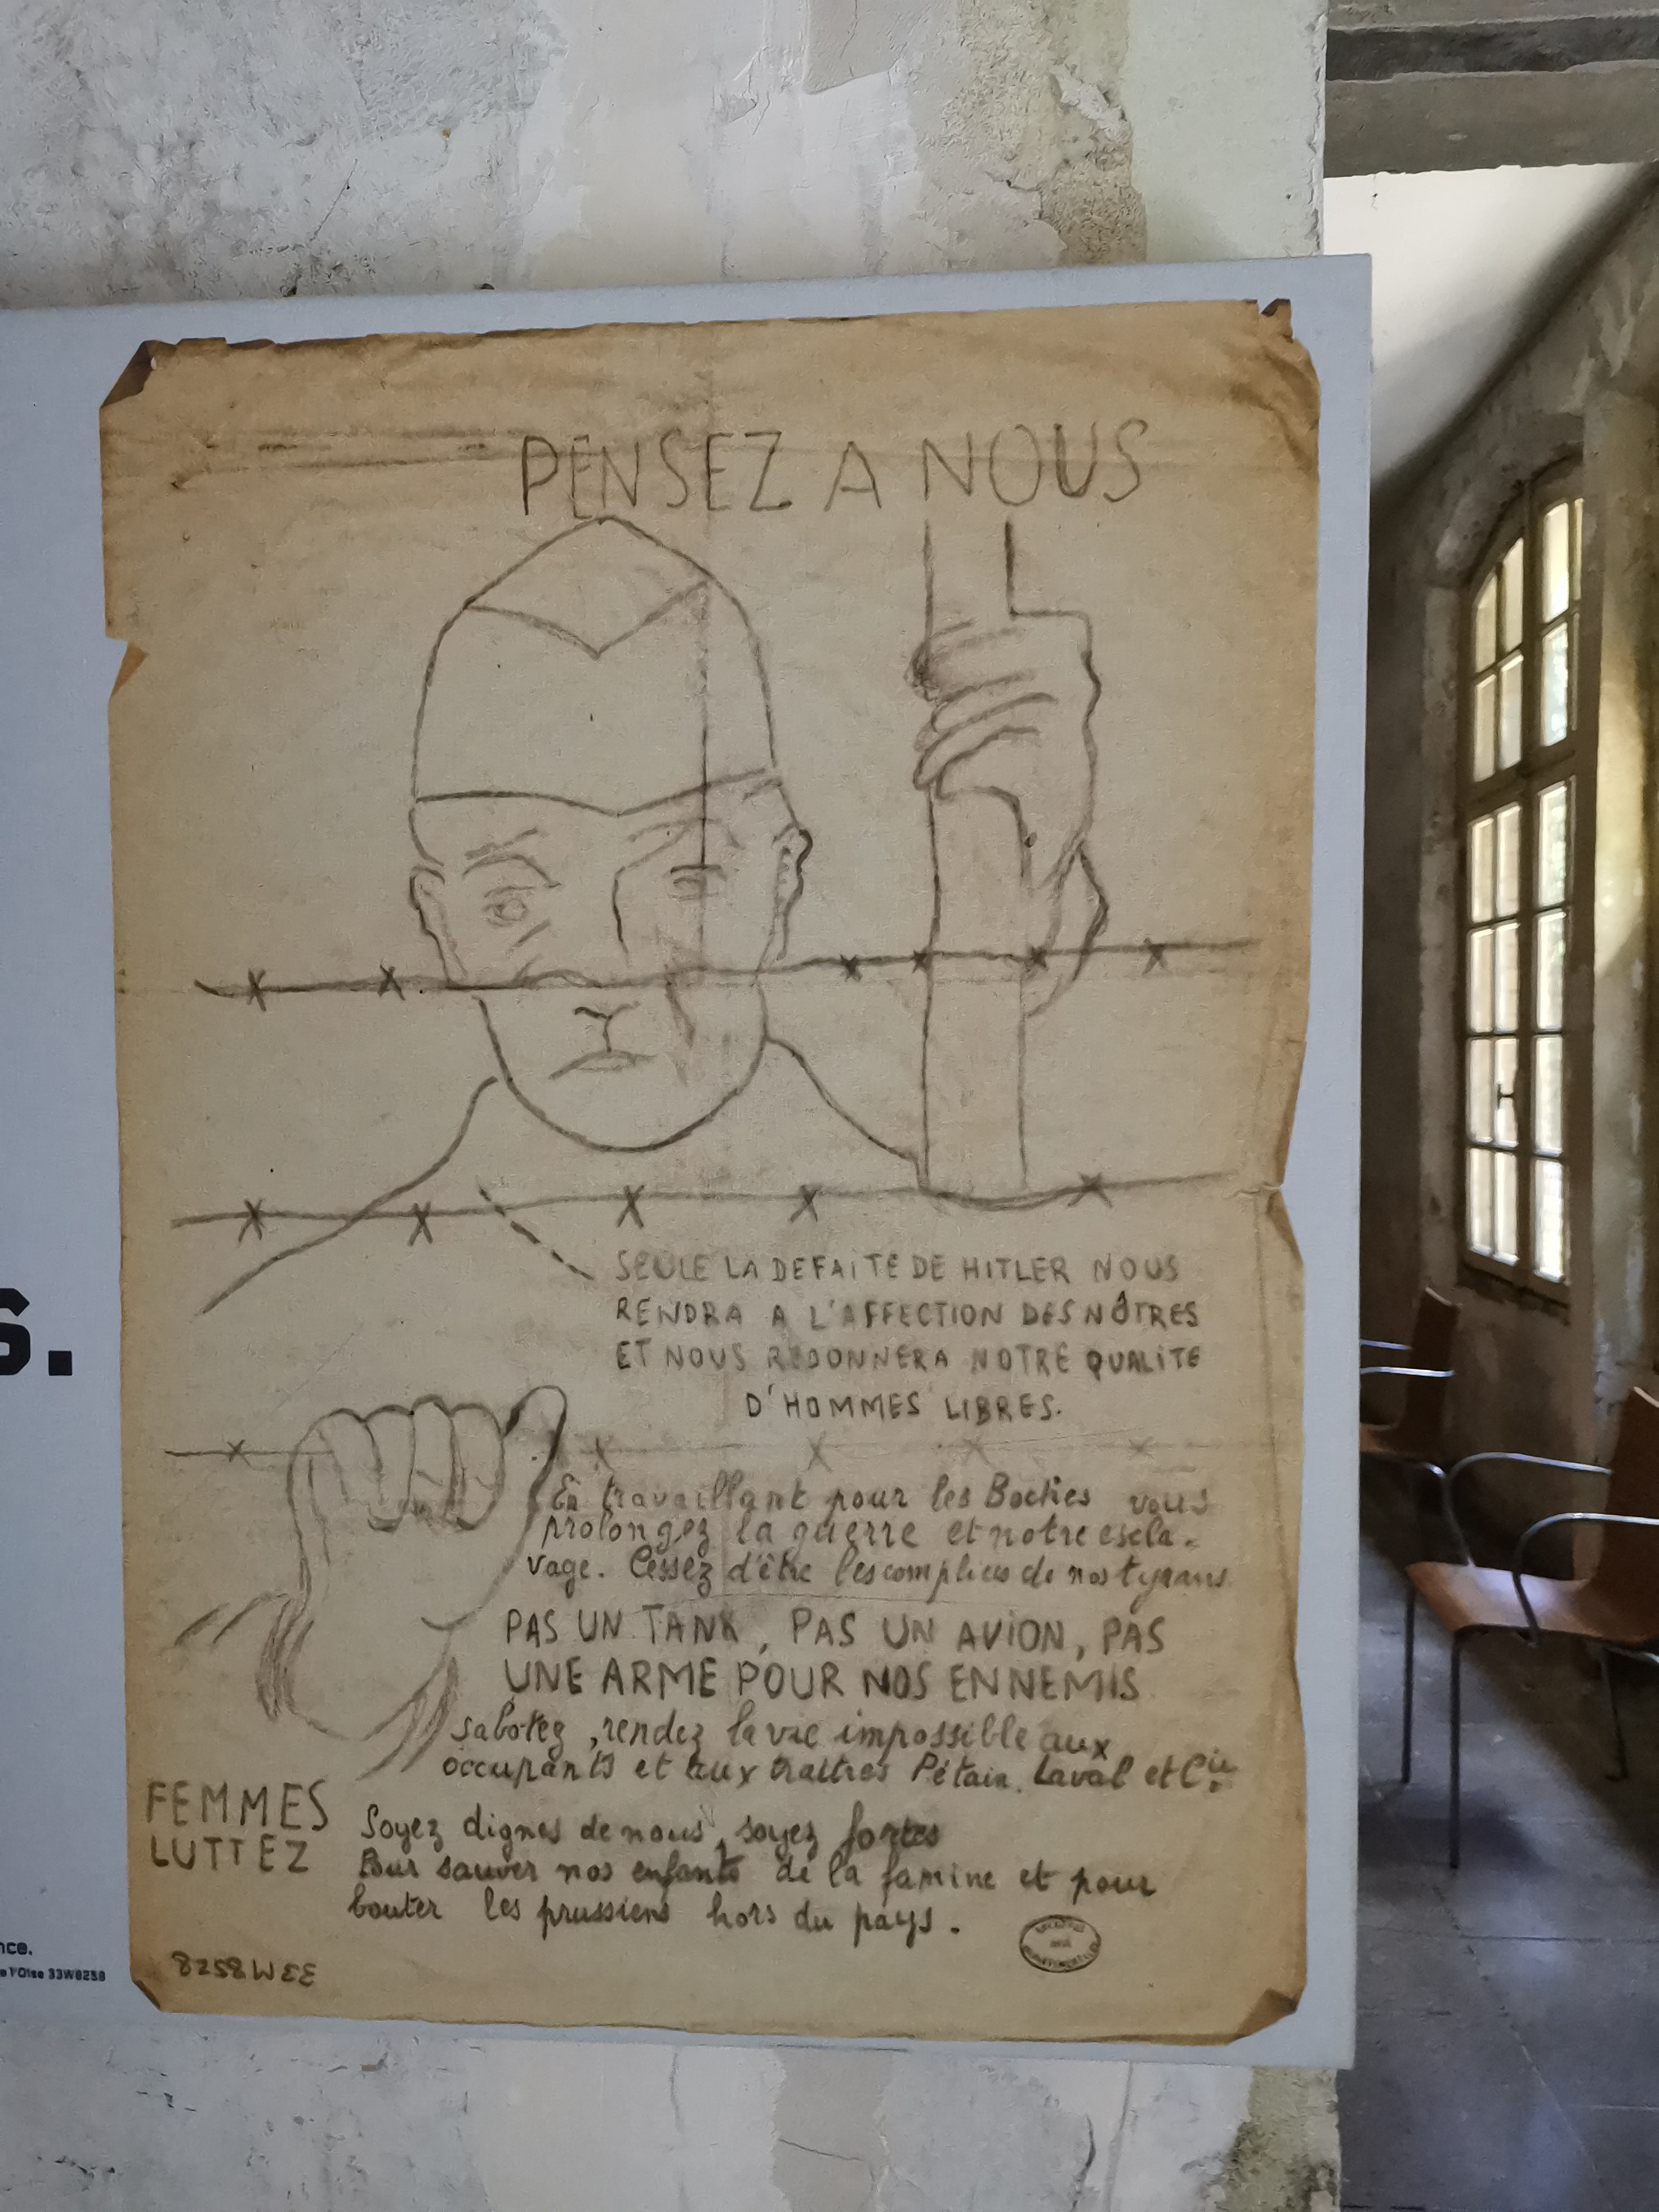 PENSEZ A NOUS
SEULE LA DEFAITE DE HITLER NOUS
RENDRA A L'AFFECTION DES NÔTRES
ET NOUS REDONNERA NOTRE QUALITE
D'HOMMES LIBRES.
En travaillant pour les Boches vous
prolongez la guerre et notre escla-
vage. Cessez d'être les complices de nos tyrans
PAS UN TANK, PAS UN AVION, PAS
UNE ARME POUR NOS ENNEMIS
Sabotez, rendez la vie impossible aux
occupants et aux traitres Pétain, Laval et Cie.
FEMMES
LUTTEZ
Soyez dignes de nous, soyez fortes
Pour sauver nos enfants de la famine et pour
bouter les prussiens hors du pays.
s.
nce.
l'Oise 33W8258